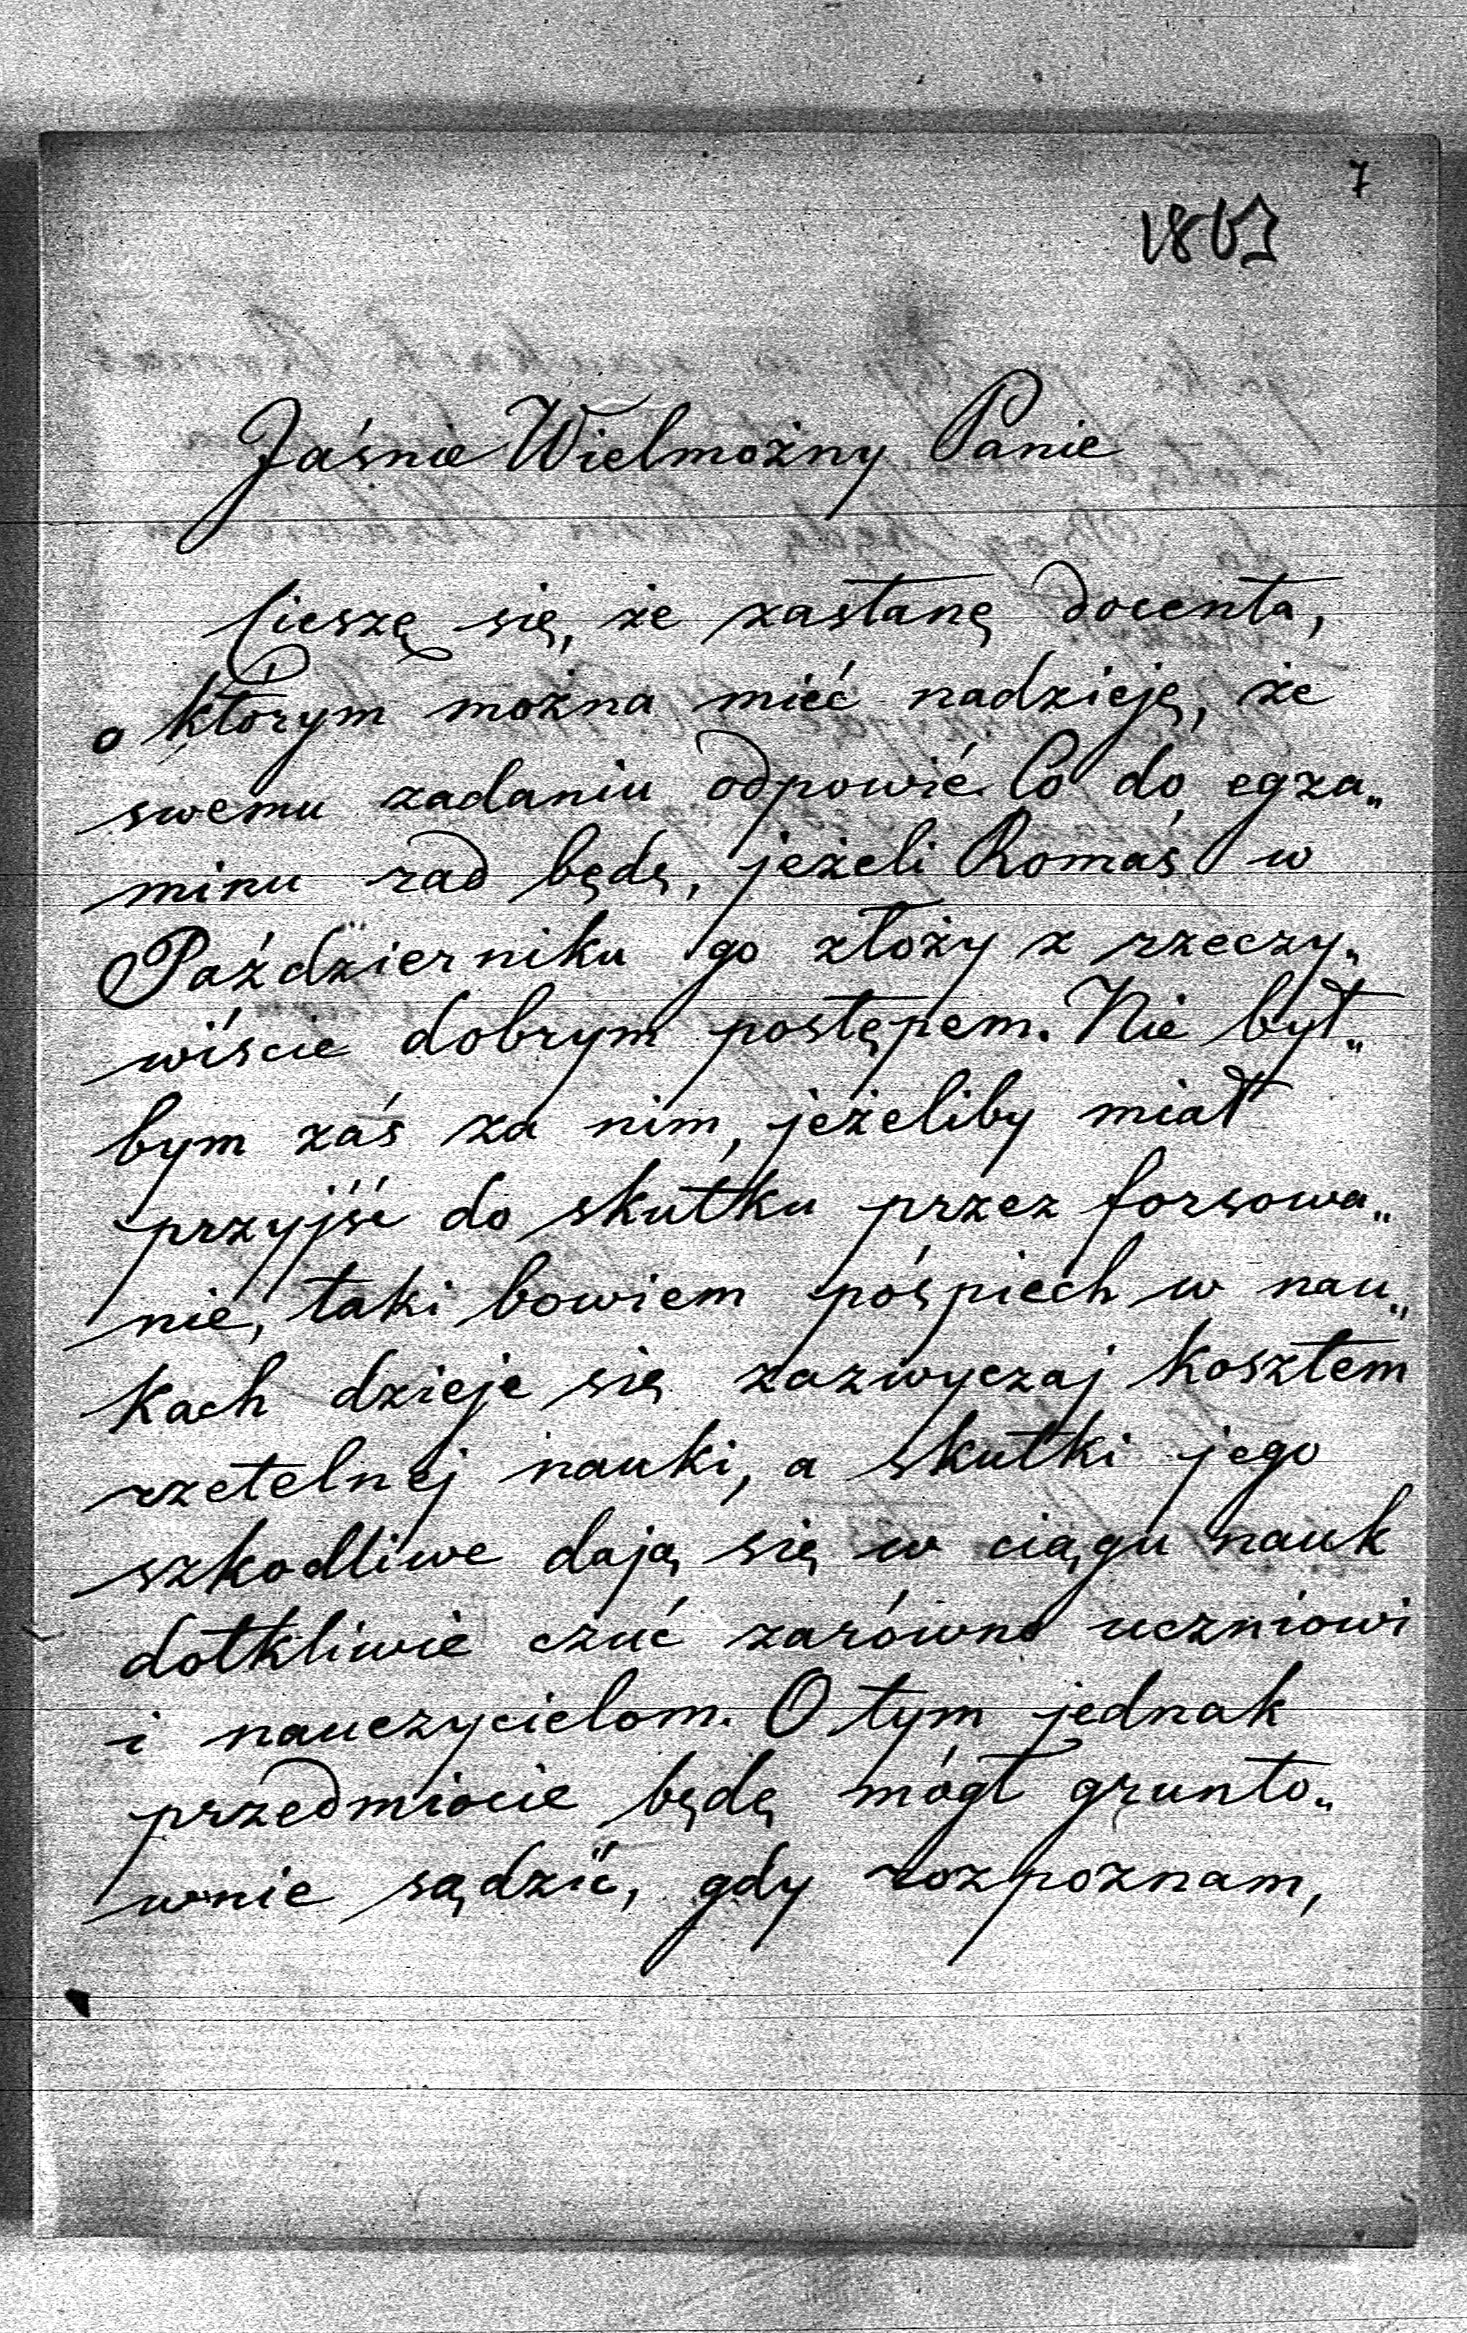 7
1863
Jaśnie Wielmożny Panie
Cieszę się, że zastanę docenta,
o którym można mieć nadzieję, że
swemu zadaniu odpowié. Co do egza„
minu rad będę, jeżeli Romaś w
Październiku go złoży z rzeczy„
wiście dobrym postępem. Nie był„
bym zaś za nim, jeżeliby miał
przyjść do skutku przez forsowa„
nie, taki bowiem pośpiech w nau„
kach dzieje się zazwyczaj kosztem
rzetelnej nauki, a skutki jego
szkodliwe dają się w ciągu nauk
dotkliwie czuć zarówno uczniowi
i nauczycielom. O tym jednak
przedmiocie będę mógł grunto„
wnie sądzić, gdy rozpoznam,